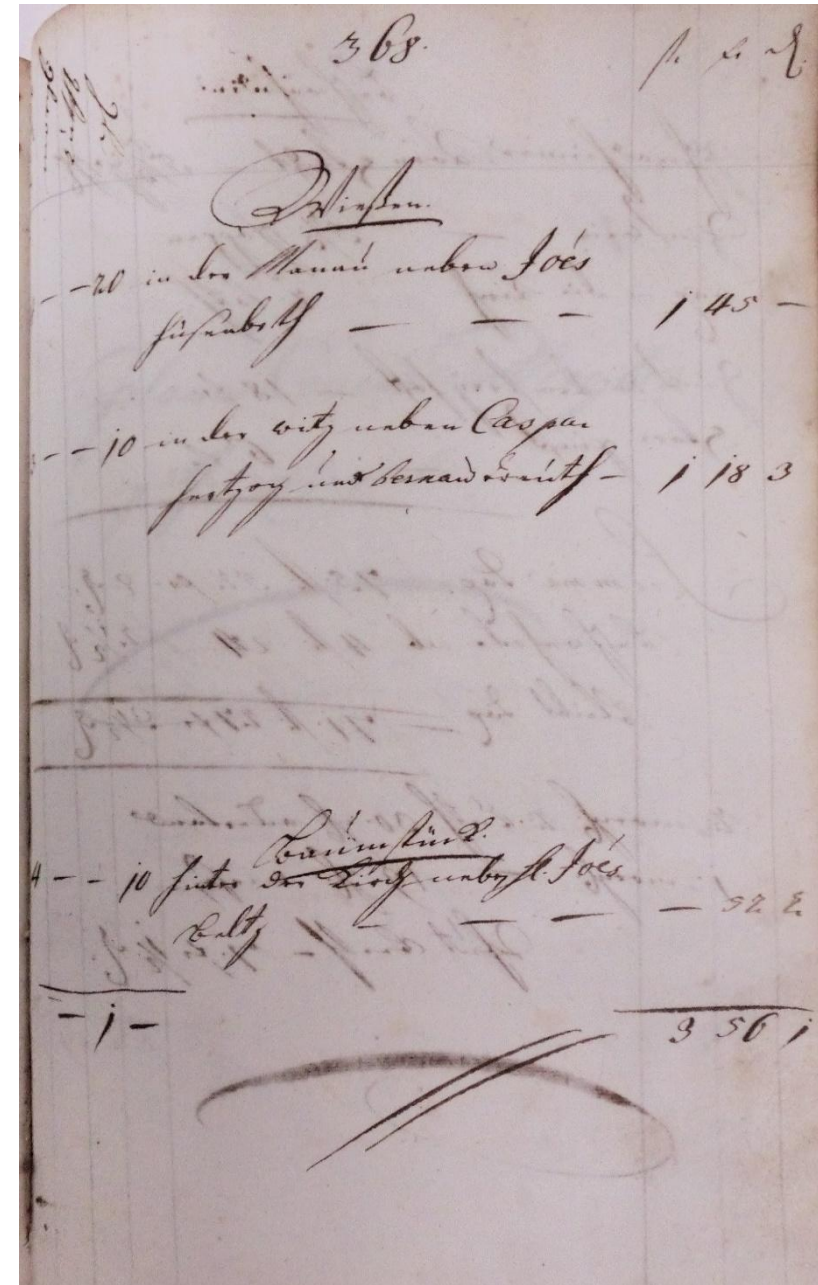 368.
fl. xr. ₰.
Wießen.
- - 20 in der Manau neben Joés
Hüsenbeth — — — 1 45 —
- - 10 in der witz neben Caspar
Hertzog und — 1 18 3
Baumstück.
4 - - 10 hinter der Kirch neben H. Joés
Beltz — — — — 52 2
- 1 - 3 56 1